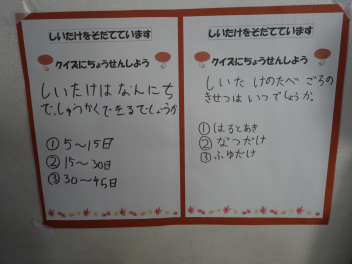 しいたけをそだてています
クイズにちょうせんしよう
しいたけはなんにち
で、しゅうかくできるでしょうか
① 5～15日
② 15～30日
③ 30～45日
しいたけをそだてています
クイズにちょうせんしよう
しいたけのたべごろの
きせつはいつでしょうか。
① はるとあき
② なつだけ
③ ふゆだけ